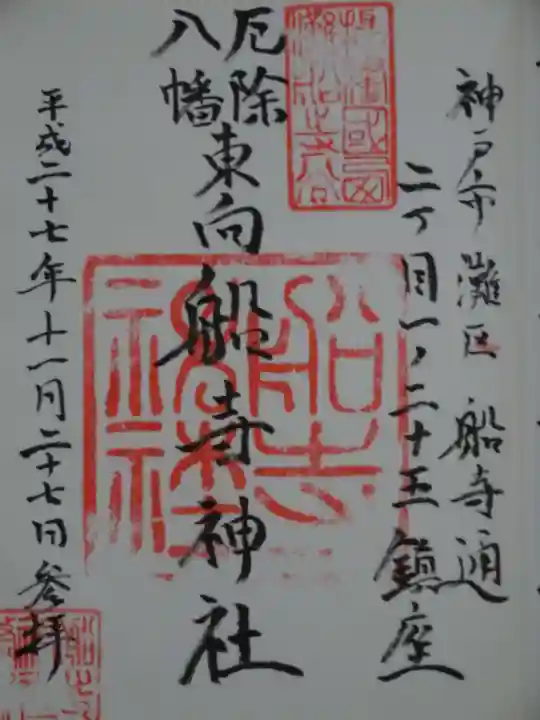 神戸市灘区船寺通
二丁目一ノ二十五鎮座
厄除
八幡
東向船寺神社
平成二十七年十一月二十七日参拝
船寺
神社